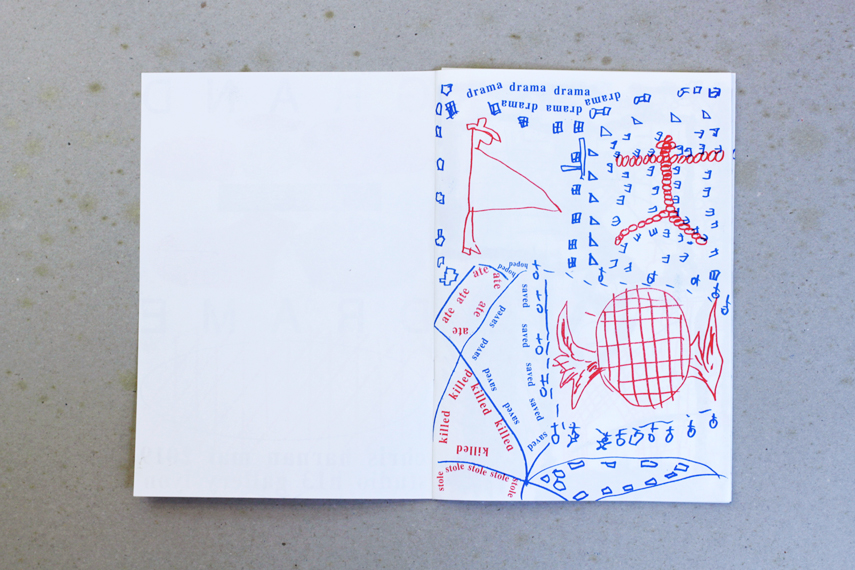 drama drama drama
drama drama drama
ate ate
ate ate
ate
ate
hoped hoped
saved
saved
saved
saved
saved
saved
saved
saved
saved
saved
killed
killed
killed
killed
killed
stole stole stole stole stole
stole